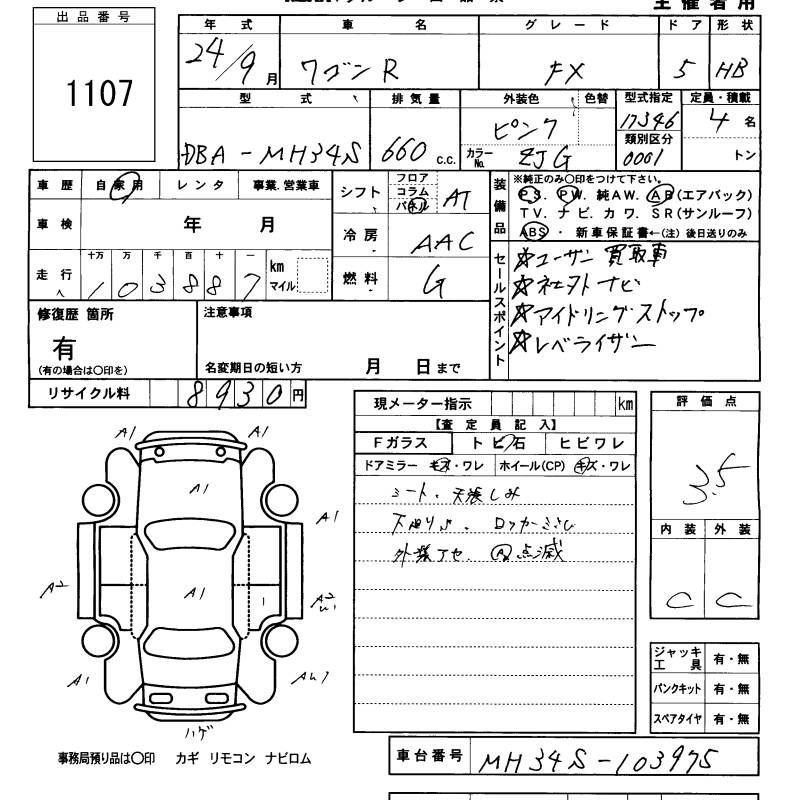 主催者用
出品番号
1107
年式 車名 グレード ドア 形状
24/9月 ワゴンR FX 5 HB
型式 排気量 外装色 色替 型式指定 定員・積載
DBA-MH34S 660 c.c. ピンク 17346 4名
カラーNo. ZJG 類別区分 0001 トン
車歴 自家用 レンタ 事業.営業車
シフト フロア コラム パネル AT
装備品
※純正のみ〇印をつけて下さい。
PS. PW. 純AW. AB(エアバック)
TV. ナビ. カワ. SR(サンルーフ)
ABS ・ 新車保証書←(注)後日送りのみ
車検 年 月
冷房 AAC
走行 十万 万 千 百 十 一 km マイル
103887
燃料 G
セールスポイント
☆ユーザー買取車
☆ネエクトナビ
☆アイドリングストップ
☆レベライザー
修復歴 箇所
有
(有の場合は〇印を)
注意事項
名変期日の短い方 月 日まで
リサイクル料 8930円
現メーター指示 km
【査定員記入】
Fガラス トビ石 ヒビワレ
ドアミラー キズ・ワレ ホイール(CP) キズ・ワレ
シート、天張しみ
下廻りさび、ロッカーさび
外装アセ、A点滅
評価点
3.5
内装 外装
C C
A1 A1
A1
A1
A2 A1 A2
A1
ハゲ
ジャッキ工具 有・無
パンクキット 有・無
スペアタイヤ 有・無
事務局預り品は〇印 カギ リモコン ナビロム
車台番号 MH34S-103975